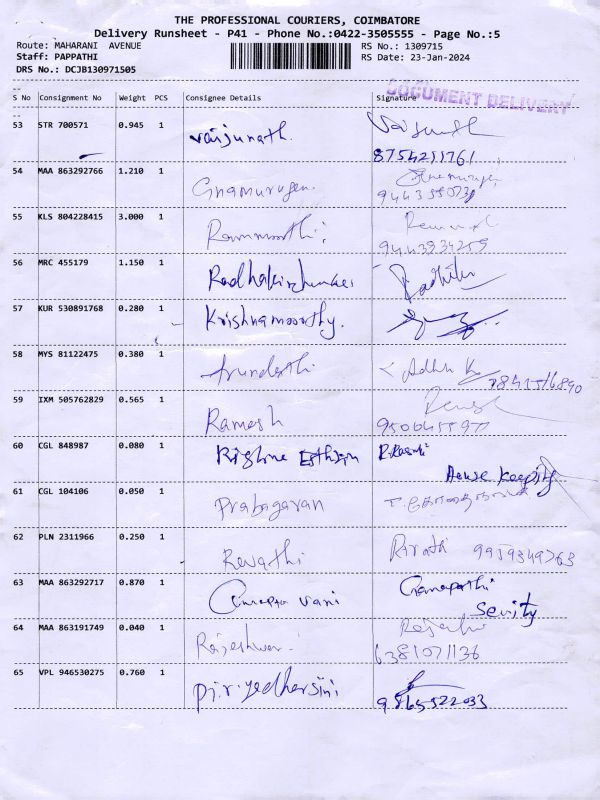 THE PROFESSIONAL COURIERS, COIMBATORE
Delivery Runsheet - P41 - Phone No.:0422-3505555 - Page No.:5
Route: MAHARANI AVENUE RS No.: 1309715
Staff: PAPPATHI RS Date: 23-Jan-2024
DRS No.: DCJB130971505
DOCUMENT DELIVERY
S No Consignment No Weight PCS Consignee Details Signature
53 STR 700571 0.945 1 Vaijunath.
8754211761
54 MAA 863292766 1.210 1 Gnamurugen.
55 KLS 804228415 3.000 1 Rammoorthi
9443934255
56 MRC 455179 1.150 1
57 KUR 530891768 0.280 1 Krishnamoorthy.
58 MYS 81122475 0.380 1
59 IXM 505762829 0.565 1 Ramesh
60 CGL 848987 0.080 1
61 CGL 104106 0.050 1 Prabagaran
62 PLN 2311966 0.250 1 Revathi 9959349763
63 MAA 863292717 0.870 1 Ganapathi
64 MAA 863191749 0.040 1 Rajeshwari
6381071136
65 VPL 946530275 0.760 1
9865522033